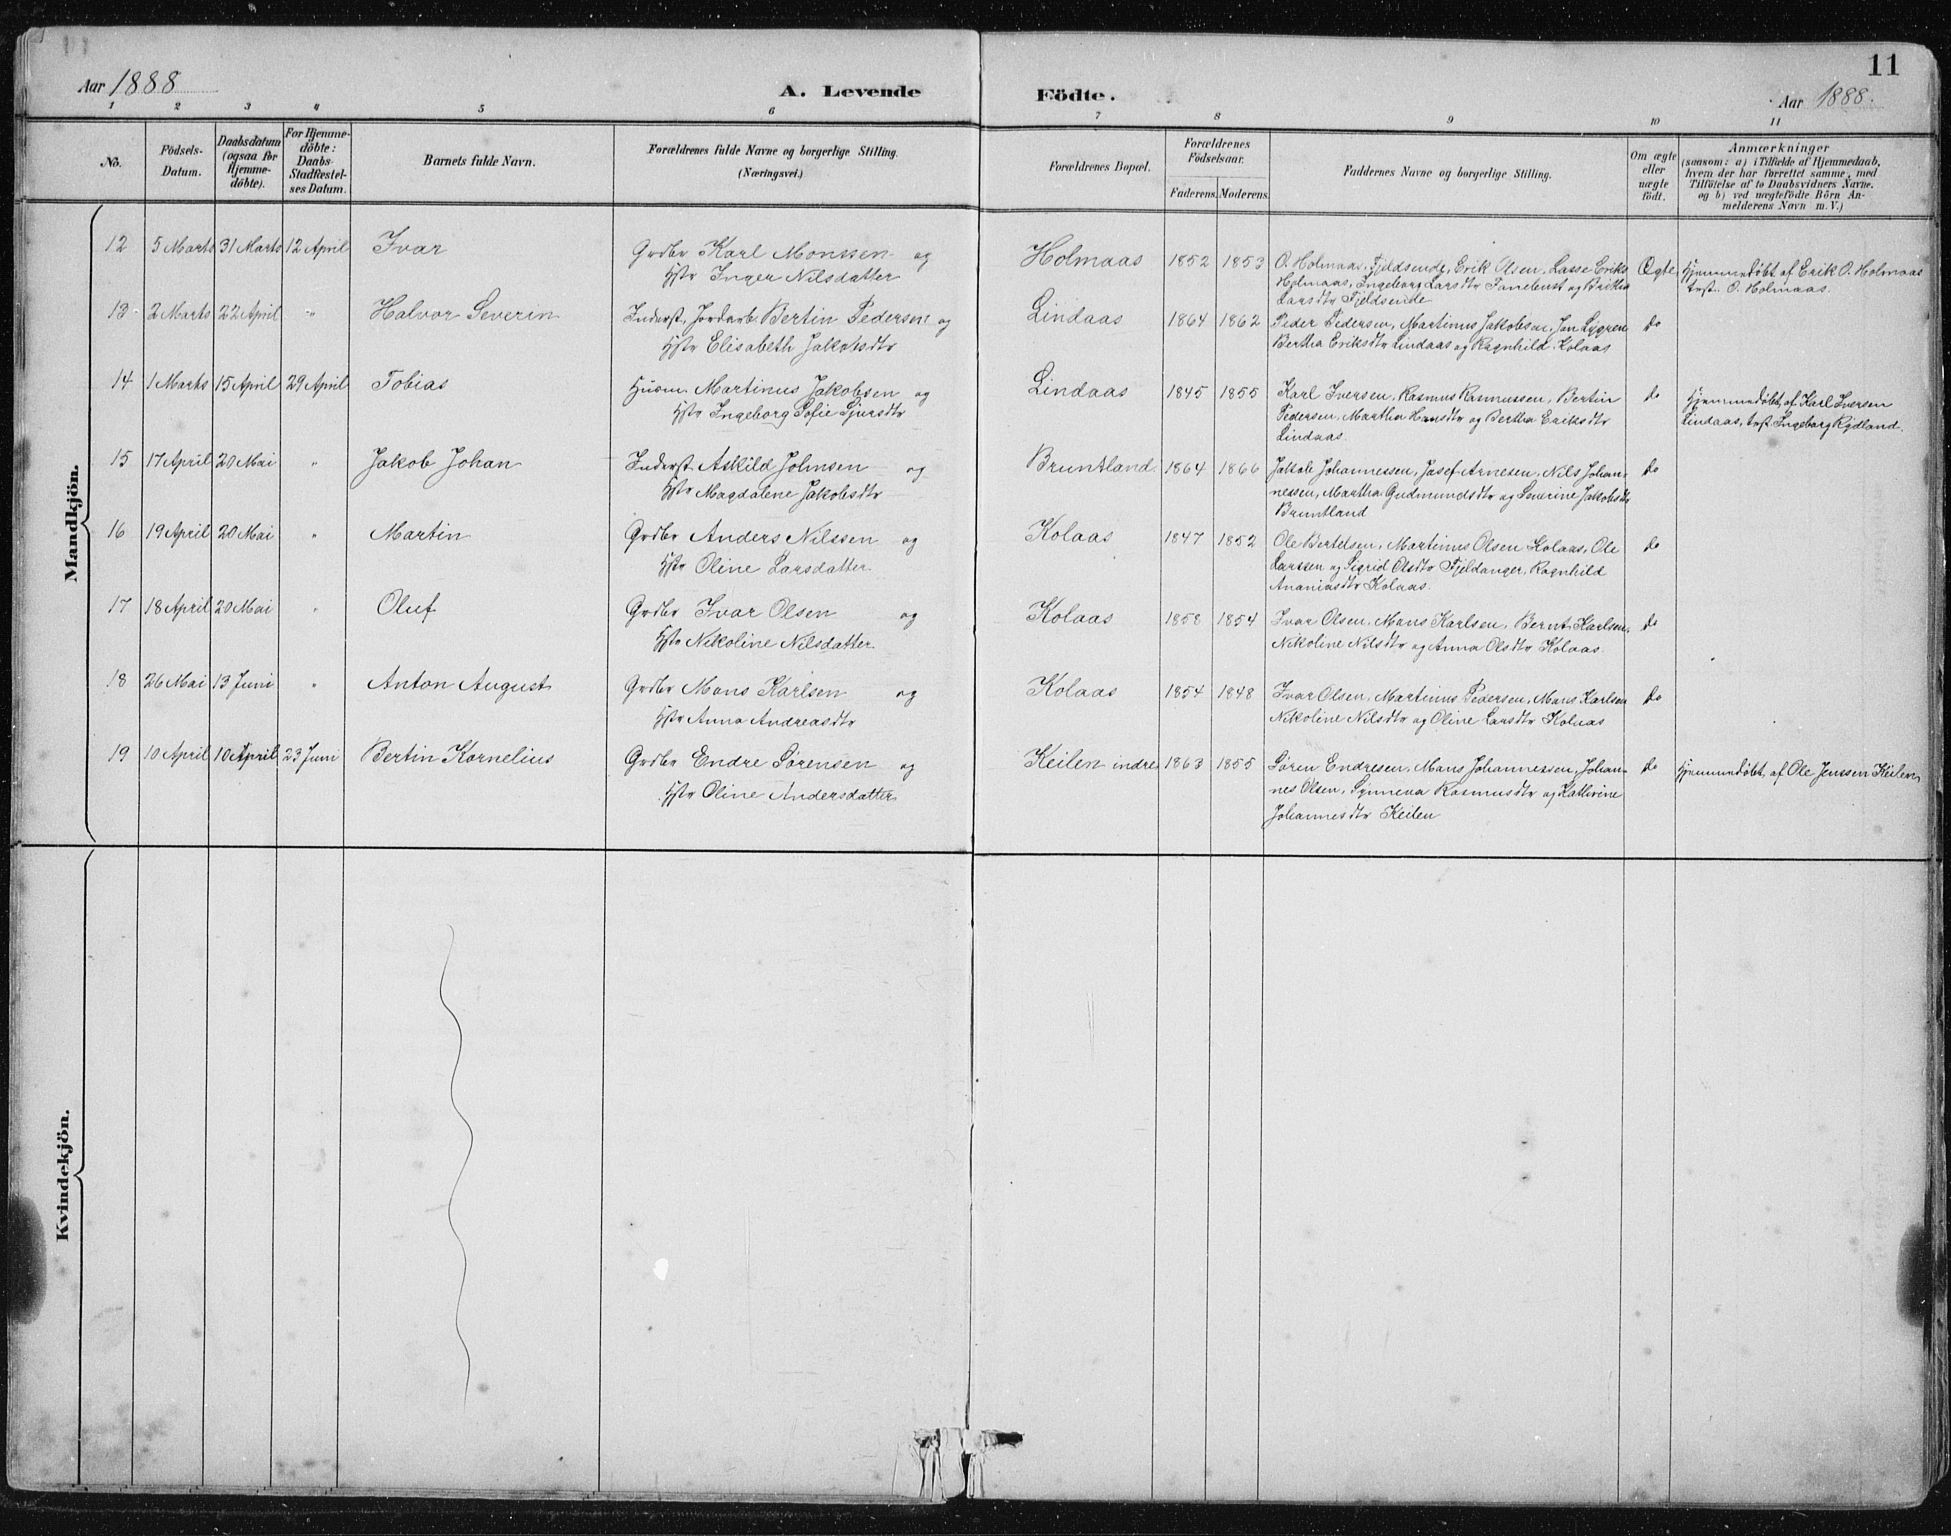 11
Aar 1888
A. Levende
Födte.
Aar 1888.
1 2 3 4 5 6 7 8 9 10 11
No.
Födsels-
Datum.
Daabsdatum
(ogsaa for
Hjemme-
döbte).
For Hjemme-
döbte:
Daabs-
Stadfæstel-
ses Datum.
Barnets fulde Navn.
Forældrenes fulde Navne og borgerlige Stilling.
(Næringsvei.)
Forældrenes Bopæl.
Forældrenes
Födselsaar.
Faderens. Moderens.
Faddernes Navne og borgerlige Stilling.
Om ægte
eller
uægte
födt.
Anmærkninger
(saasom: a) i Tilfælde af Hjemmedaab,
hvem der har forrettet samme, med
Tilföielse af to Daabsvidners Navne.
og b) ved uægtefödte Börn An-
melderens Navn m. V.)
Mandkjön.
12 5 Marts 31 Marts 12 April Ivar Grdbr Karl Monssen og Holmaas 1852 1853 O. Holmaas, Fjeldsende, Erik Olsen, Lasse Eriks Ægte Hjemmedøbt af Erik O. Holmaas
Hstr Inger Nilsdatter Holmaas, Ingeborg Larsdtr Tanebust og Britha test. O. Holmaas.
Larsdtr Fjeldsende
13 2 Marts 22 April " Halvor Severin Inderst, Jordarb. Bertin Pedersen og Lindaas 1864 1862 Peder Pedersen, Martinus Jakobsen, Jan Lygren do
Hstr Elisabeth Jakobsdtr Bertha Eriksdtr Lindaas og Ragnhild Kolaas
14 1 Marts 15 April 29 April Tobias Husm. Martinus Jakobsen og Lindaas 1845 1855 Karl Iversen, Rasmus Rasmussen, Bertin do Hjemmedøbt, af Karl Iversen
Hstr Ingeborg Sofie Sjursdtr Pedersen, Martha Hansdtr og Bertha Eriksdtr Lindaas, test. Ingeborg Rydland.
Lindaas.
15 17 April 20 Mai " Jakob Johan Inderst Askild Johnsen og Bruntland 1864 1866 Jakob Johannessen, Josef Arnesen, Nils Johan- do
Hstr Magdalene Jakobsdtr nessen, Martha Gudmundsdtr og Severine Jakobsdtr
Bruntland
16 19 April 20 Mai " Martin Grdbr Anders Nilssen og Kolaas 1847 1852 Ole Bertelsen, Martinus Olsen Kolaas, Ole do
Hstr Oline Larsdatter Larssen og Sigrid Olsdtr Fjeldanger, Ragnhild
Ananiasdtr Kolaas.
17 18 April 20 Mai " Oluf Grdbr Ivar Olsen og Kolaas 1858 1854 Ivar Olsen, Mons Karlsen, Bernt Karlsen, do
Hstr Nikoline Nilsdatter Nikoline Nilsdtr og Anna Olsdtr Kolaas.
18 26 Mai 13 Juni " Anton August Grdbr Mons Karlsen og Kolaas 1854 1848 Ivar Olsen, Martinus Pedersen, Mons Karlsen do
Hstr Anna Andreasdtr Nikoline Nilsdtr og Oline Larsdtr Kolaas
19 10 April 10 April 23 Juni Bertin Kornelius Grdbr Endre Sørensen og Keilen indre 1863 1855 Søren Endresen, Mons Johannessen, Johan- do Hjemmedøbt, af Ole Jenssen Keilen
Hstr Oline Andersdatter nes Olsen, Synneva Rasmusdtr og Kathrine
Johannesdtr Keilen
Kvindekjön.